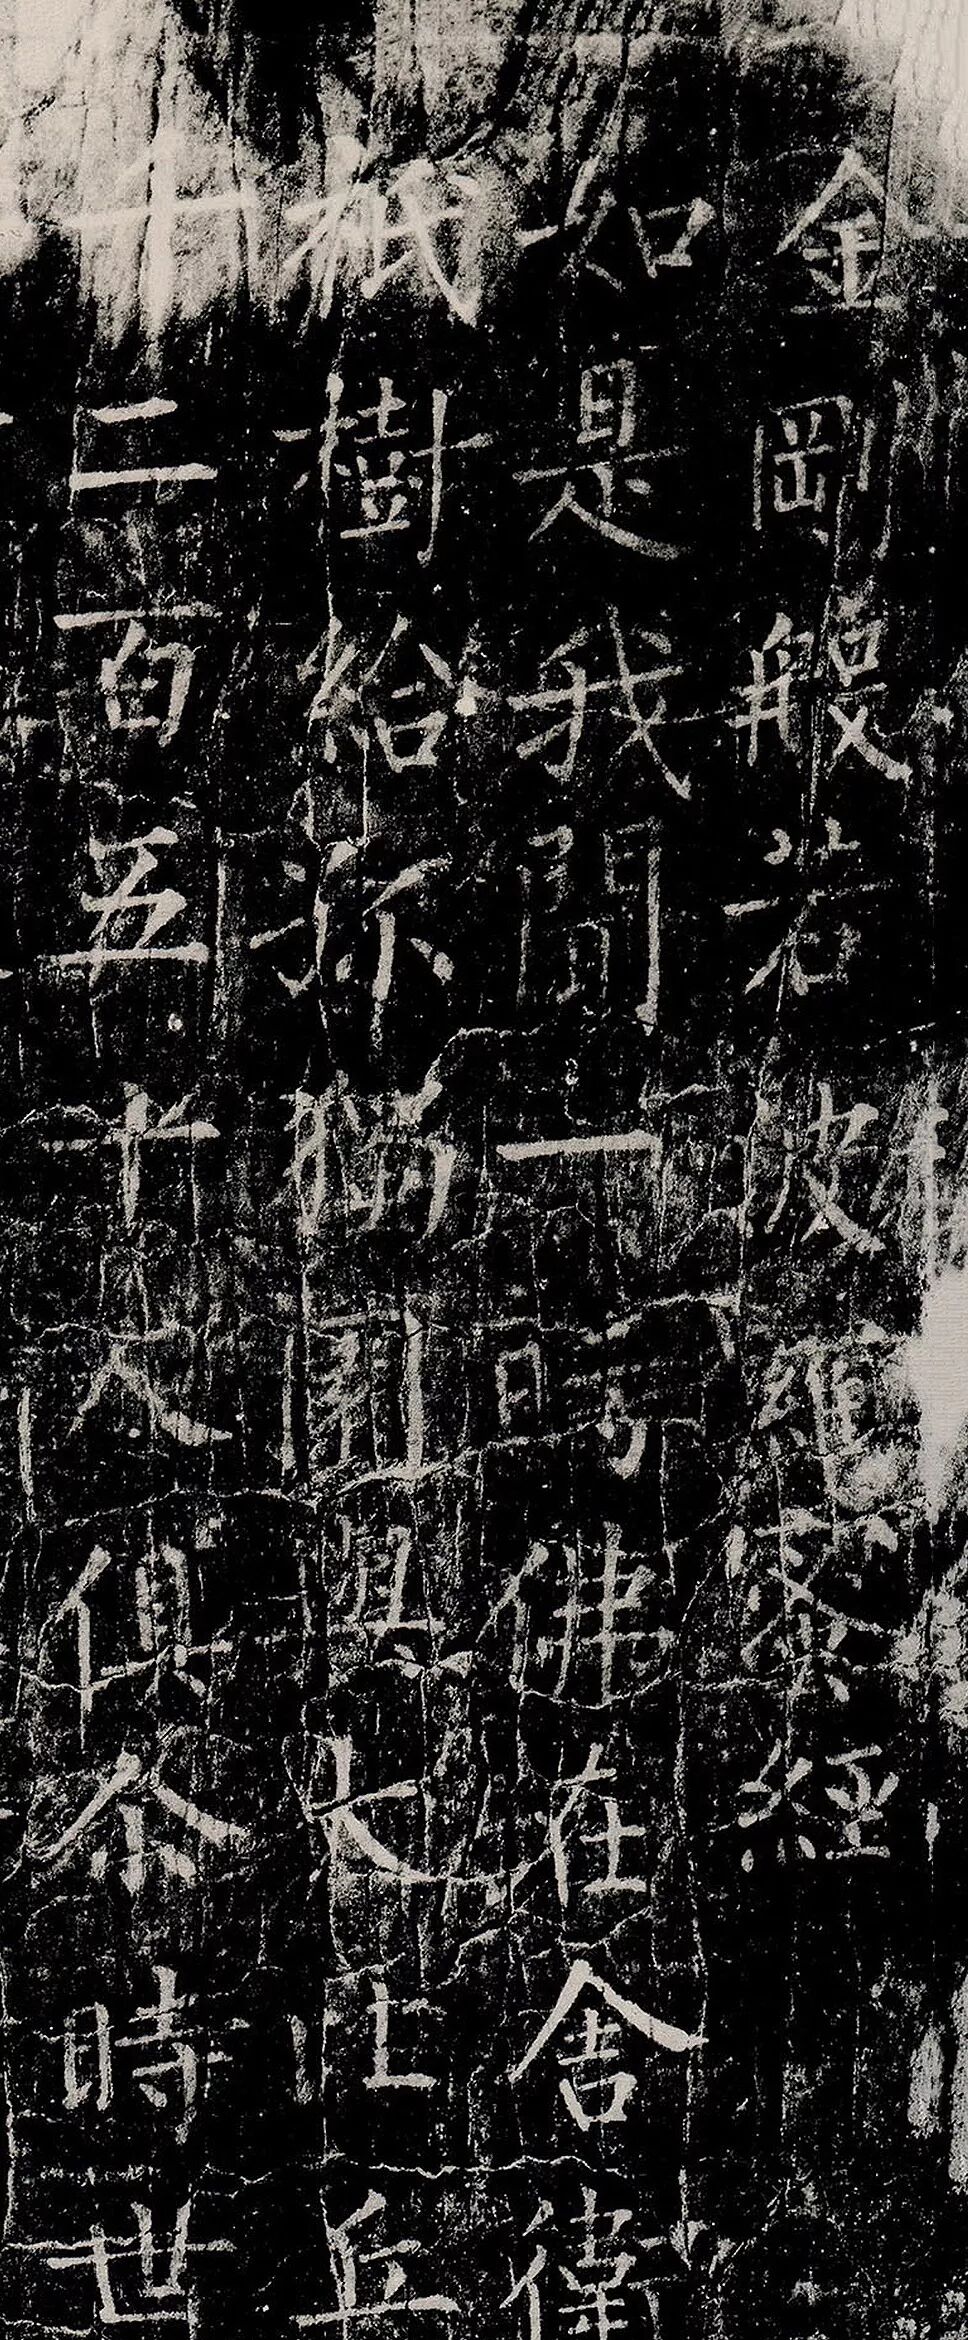 金剛般若波羅蜜經
如是我聞一時佛在舍衛
祇樹給孤獨園與大比丘
千二百五十人俱尒時世